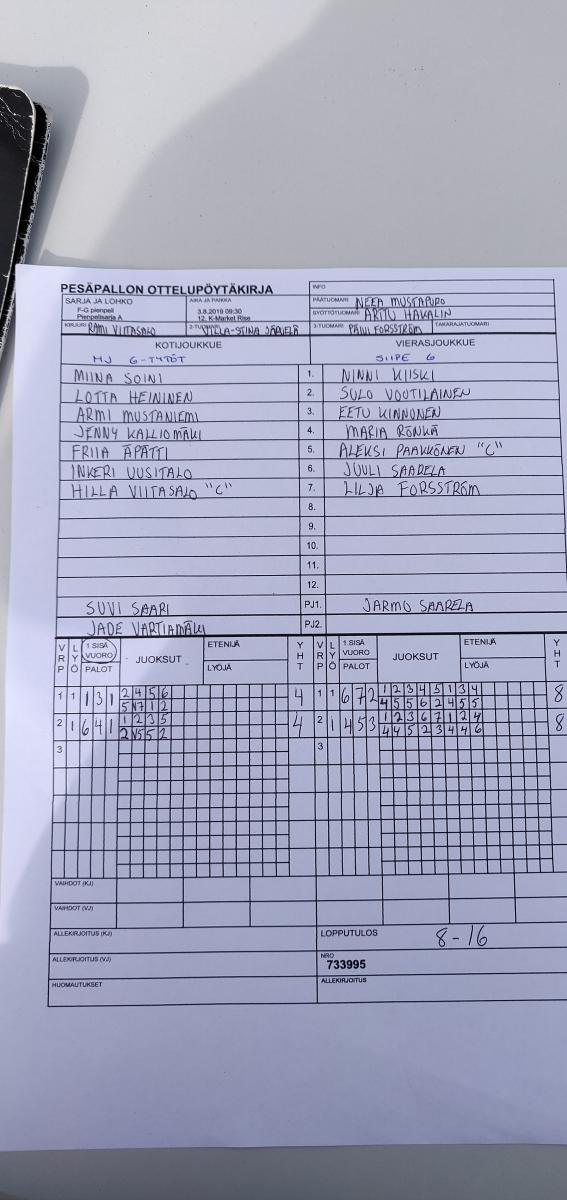 PESÄPALLON OTTELUPÖYTÄKIRJA
INFO
SARJA JA LOHKO
F-G pienpeli
Pienpelisarja A
AIKA JA PAIKKA
3.8.2019 09:30
12. K-Market Rise
PÄÄTUOMARI NEEA MUSTAPURO
SYÖTTÖTUOMARI ARTTU HAKALIN
KIRJURI RAMI VIITASALO
2-TUOMARI VILLA-STINA JÄRVELÄ
3-TUOMARI PÄIVI FORSSTRÖM
TAKARAJATUOMARI
KOTIJOUKKUE
MJ G-TYTÖT
VIERASJOUKKUE
SIIPE G
MIINA SOINI 1. NINNI KIISKI
LOTTA HEININEN 2. SULO VOUTILAINEN
ARMI MUSTANIEMI 3. EETU KINNUNEN
JENNY KALLIOMÄKI 4. MARIA RÖNKÄ
FRIIA ÄPÄTTI 5. ALEKSI PAAKKÖNEN "C"
INKERI UUSITALO 6. JUULI SAARELA
HILLA VIITASALO "C" 7. LILJA FORSSTRÖM
8.
9.
10.
11.
12.
SUVI SAARI PJ1. JARMO SAARELA
JADE VARTIAMÄKI PJ2.
VRP LYÖ 1.SISÄ VUORO PALOT JUOKSUT ETENIJÄ LYÖJÄ YHT VRP LYÖ 1.SISÄ VUORO PALOT JUOKSUT ETENIJÄ LYÖJÄ YHT
1 1 1 3 1 2 4 5 6 4 1 1 6 7 2 1 2 3 4 5 1 3 4 8
5 V7 1 2 4 5 5 6 2 4 5 5
2 1 6 4 1 1 2 3 5 4 2 1 4 5 3 1 2 3 6 7 1 2 4 8
2 V5 5 2 4 4 5 2 3 4 4 6
3 3
VAIHDOT (KJ)
VAIHDOT (VJ)
ALLEKIRJOITUS (KJ)
LOPPUTULOS 8-16
ALLEKIRJOITUS (VJ)
NRO
733995
HUOMAUTUKSET
ALLEKIRJOITUS